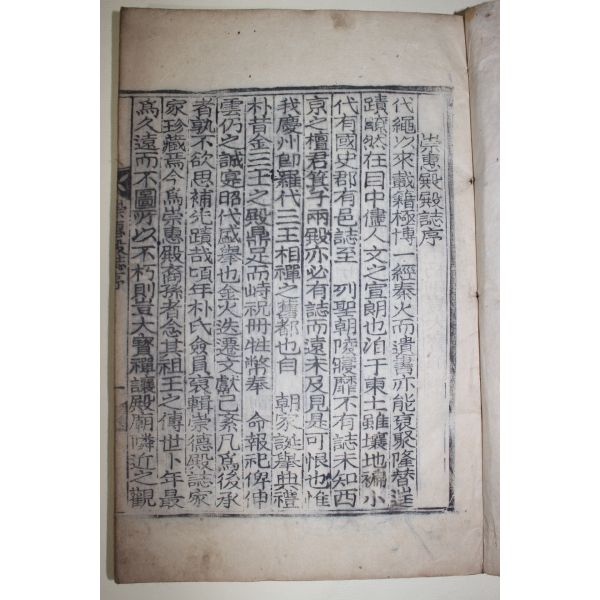 崇惠殿殿誌序
代繩以來載籍極博一經秦火而遺書亦能裒聚隆替遑
蹟瞭然在目中偉人文之宣朗也洎于東土雖壤地褊小
代有國史郡有邑誌至 列聖朝陵寢靡不有誌未知西
京之檀君箕子兩殿亦必有誌而遠未及見是可恨也惟
我慶州卽羅代三王相禪之舊都也自 朝家誕擧典禮
朴昔金三王之殿鼎足而峙祝冊牲幣奉 命報祀俾伸
雲仍之誠寔昭代盛擧也金火迭遷文獻已索凡爲後承
者孰不欲思補先蹟哉頃年朴氏僉員裒輯崇德殿誌家
家珍藏焉今爲崇惠殿裔孫者念其祖王之傳世卜年最
爲久遠而不圖所以不朽則豈大寶禪讓殿廟隣近之觀
崇惠殿誌序
一